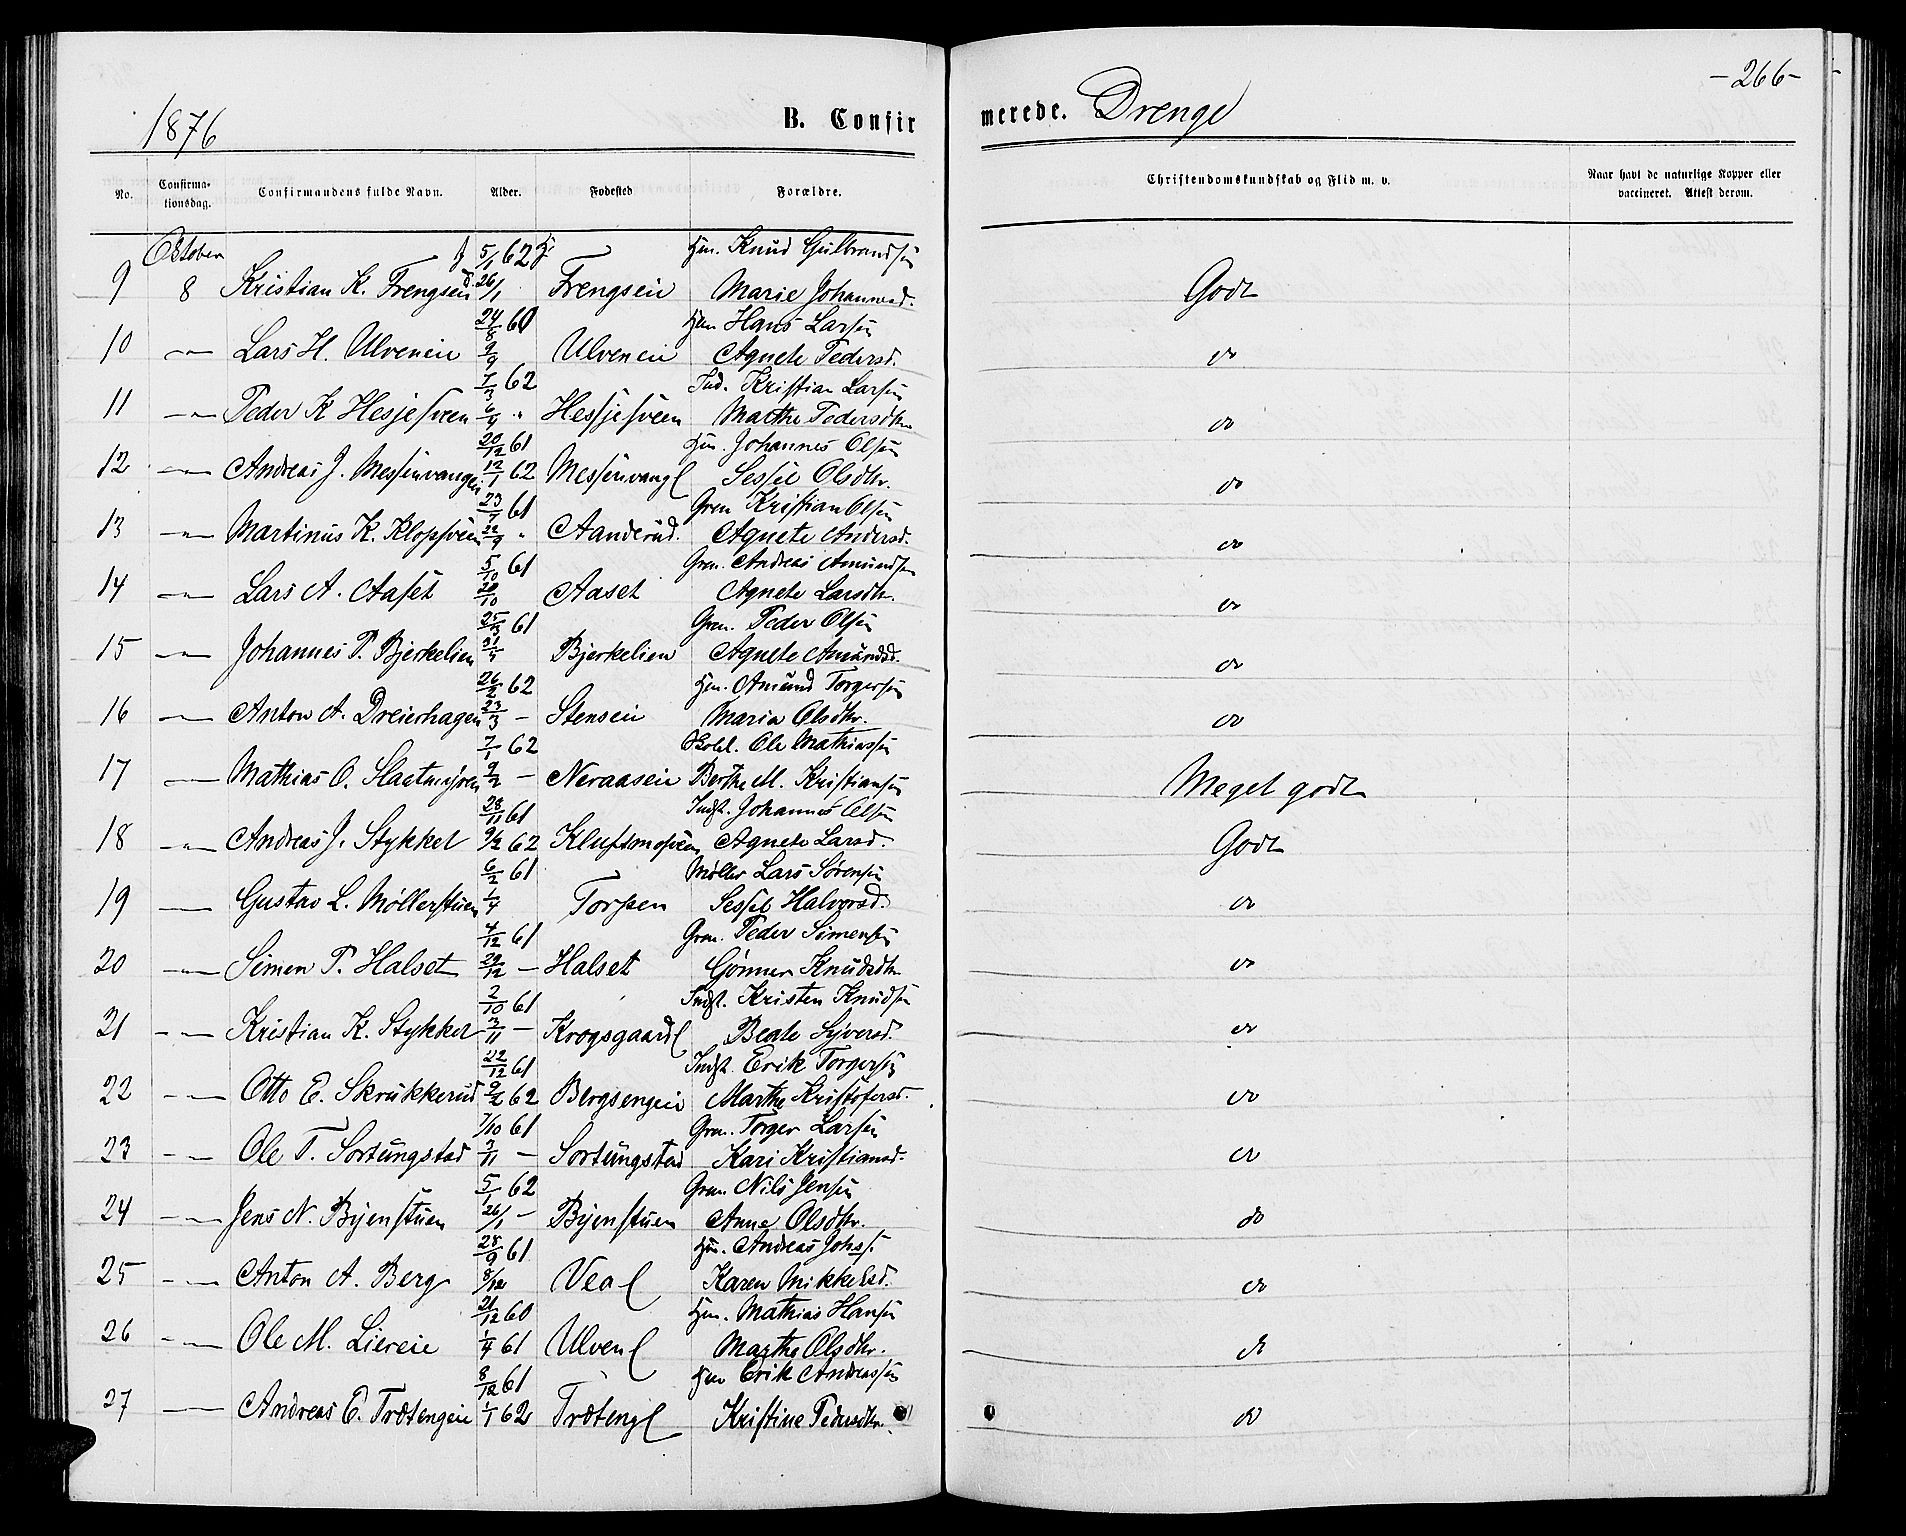 -266-
1876 B. Confirmerede. Drenge
No. Confirmationsdag. Confirmandens fulde Navn. Alder. Fødested Forældre. Christendomskundskab og Flid m. v. Naar havt de naturlige Kopper eller vaccineret. Attest derom.
October f 5/1 62 Hm. Knud Gulbrandsen
9 8 Kristian K. Frengsen d. 26/1 Frengseie Marie Johannesd. Godt
24/8 60 Hm Hans Larsen
10 -"- Lars H. Ulveneie 9/9 Ulveneie Agnete Pedersd. do
7/3 62 Ind. Kristian Larsen
11 -"- Peder K Hesjesveen 6/4 " Hessjesveen Marthe Pedersdtr do
20/12 61 Hm. Johannes Olsen
12 -"- Andreas J. Messenvangen 12/1 62 Messenvangl Sessel Olsdtr. do
23/7 61 Grm Kristian Olsen
13 -"- Martinus K. Klopsveen 22/9 " Aanderud. Agnete Andersd. do
5/10 61 Grm. Andreas Amundsen
14 -"- Lars A. Aaset 20/10 Aaset Agnete Larsdtr. do
25/3 61 Grm. Peder Olsen
15 -"- Johannes P. Bjerkelien 31/3 Bjerkelien Agnete Amundsd. do
26/2 62 Hm. Amund Torgersen
16 -"- Anton A. Dreierhagen 23/3 - Stenseie Maria Olsdtr. do
7/1 62 Skolel. Ole Mathiassen
17 -"- Mathias O. Slaatmyren 9/2 - Neraaseie Berthe M. Kristiansen Meget godt
28/11 61 Indst. Johannes Olsen
18 -"- Andreas J. Stykket 9/2 62 Kluftmosveen Agnete Larsd. Godt
6/2 61 Møller Lars Sørensen
19 -"- Gustav L. Møllerstuen 1/4 Torpen Sessel Halvorsd. do
4/12 61 Grm. Peder Simensen
20 -"- Simen P. Halset 29/12 - Halset Gønner Knudsdtr do
2/10 61 Indst. Kristen Knudsen
21 -"- Kristian K. Stykket 3/11 - Krogsgaardl Beate Syversd. do
22/12 61 Indst. Erik Torgersen
22 -"- Otto E. Skrukkerud 9/2 62 Bergsengeie Marthe Kristofersd. do
7/10 61 Grm. Torger Larsen
23 -"- Ole T. Sortungstad 3/11 - Sortungstad Kari Kristiansd. do
5/1 62 Grm. Nils Jensen
24 -"- Jens N. Byenstuen 26/1 - Byenstuen Anne Olsdtr. do
28/9 61 Hm. Andreas Johs.
25 -"- Anton A. Berg 8/12 Veal Karen Mikkelsd. do
21/12 60 Hm. Mathias Hansen
26 -"- Ole M. Liereie 1/4 61 Ulvenl Marthe Olsdtr. do
8/12 61 Hm Erik Andreassen
27 -"- Andreas E. Trætengeie 1/1 62 Trætengl Kristine Pedersdtr. do